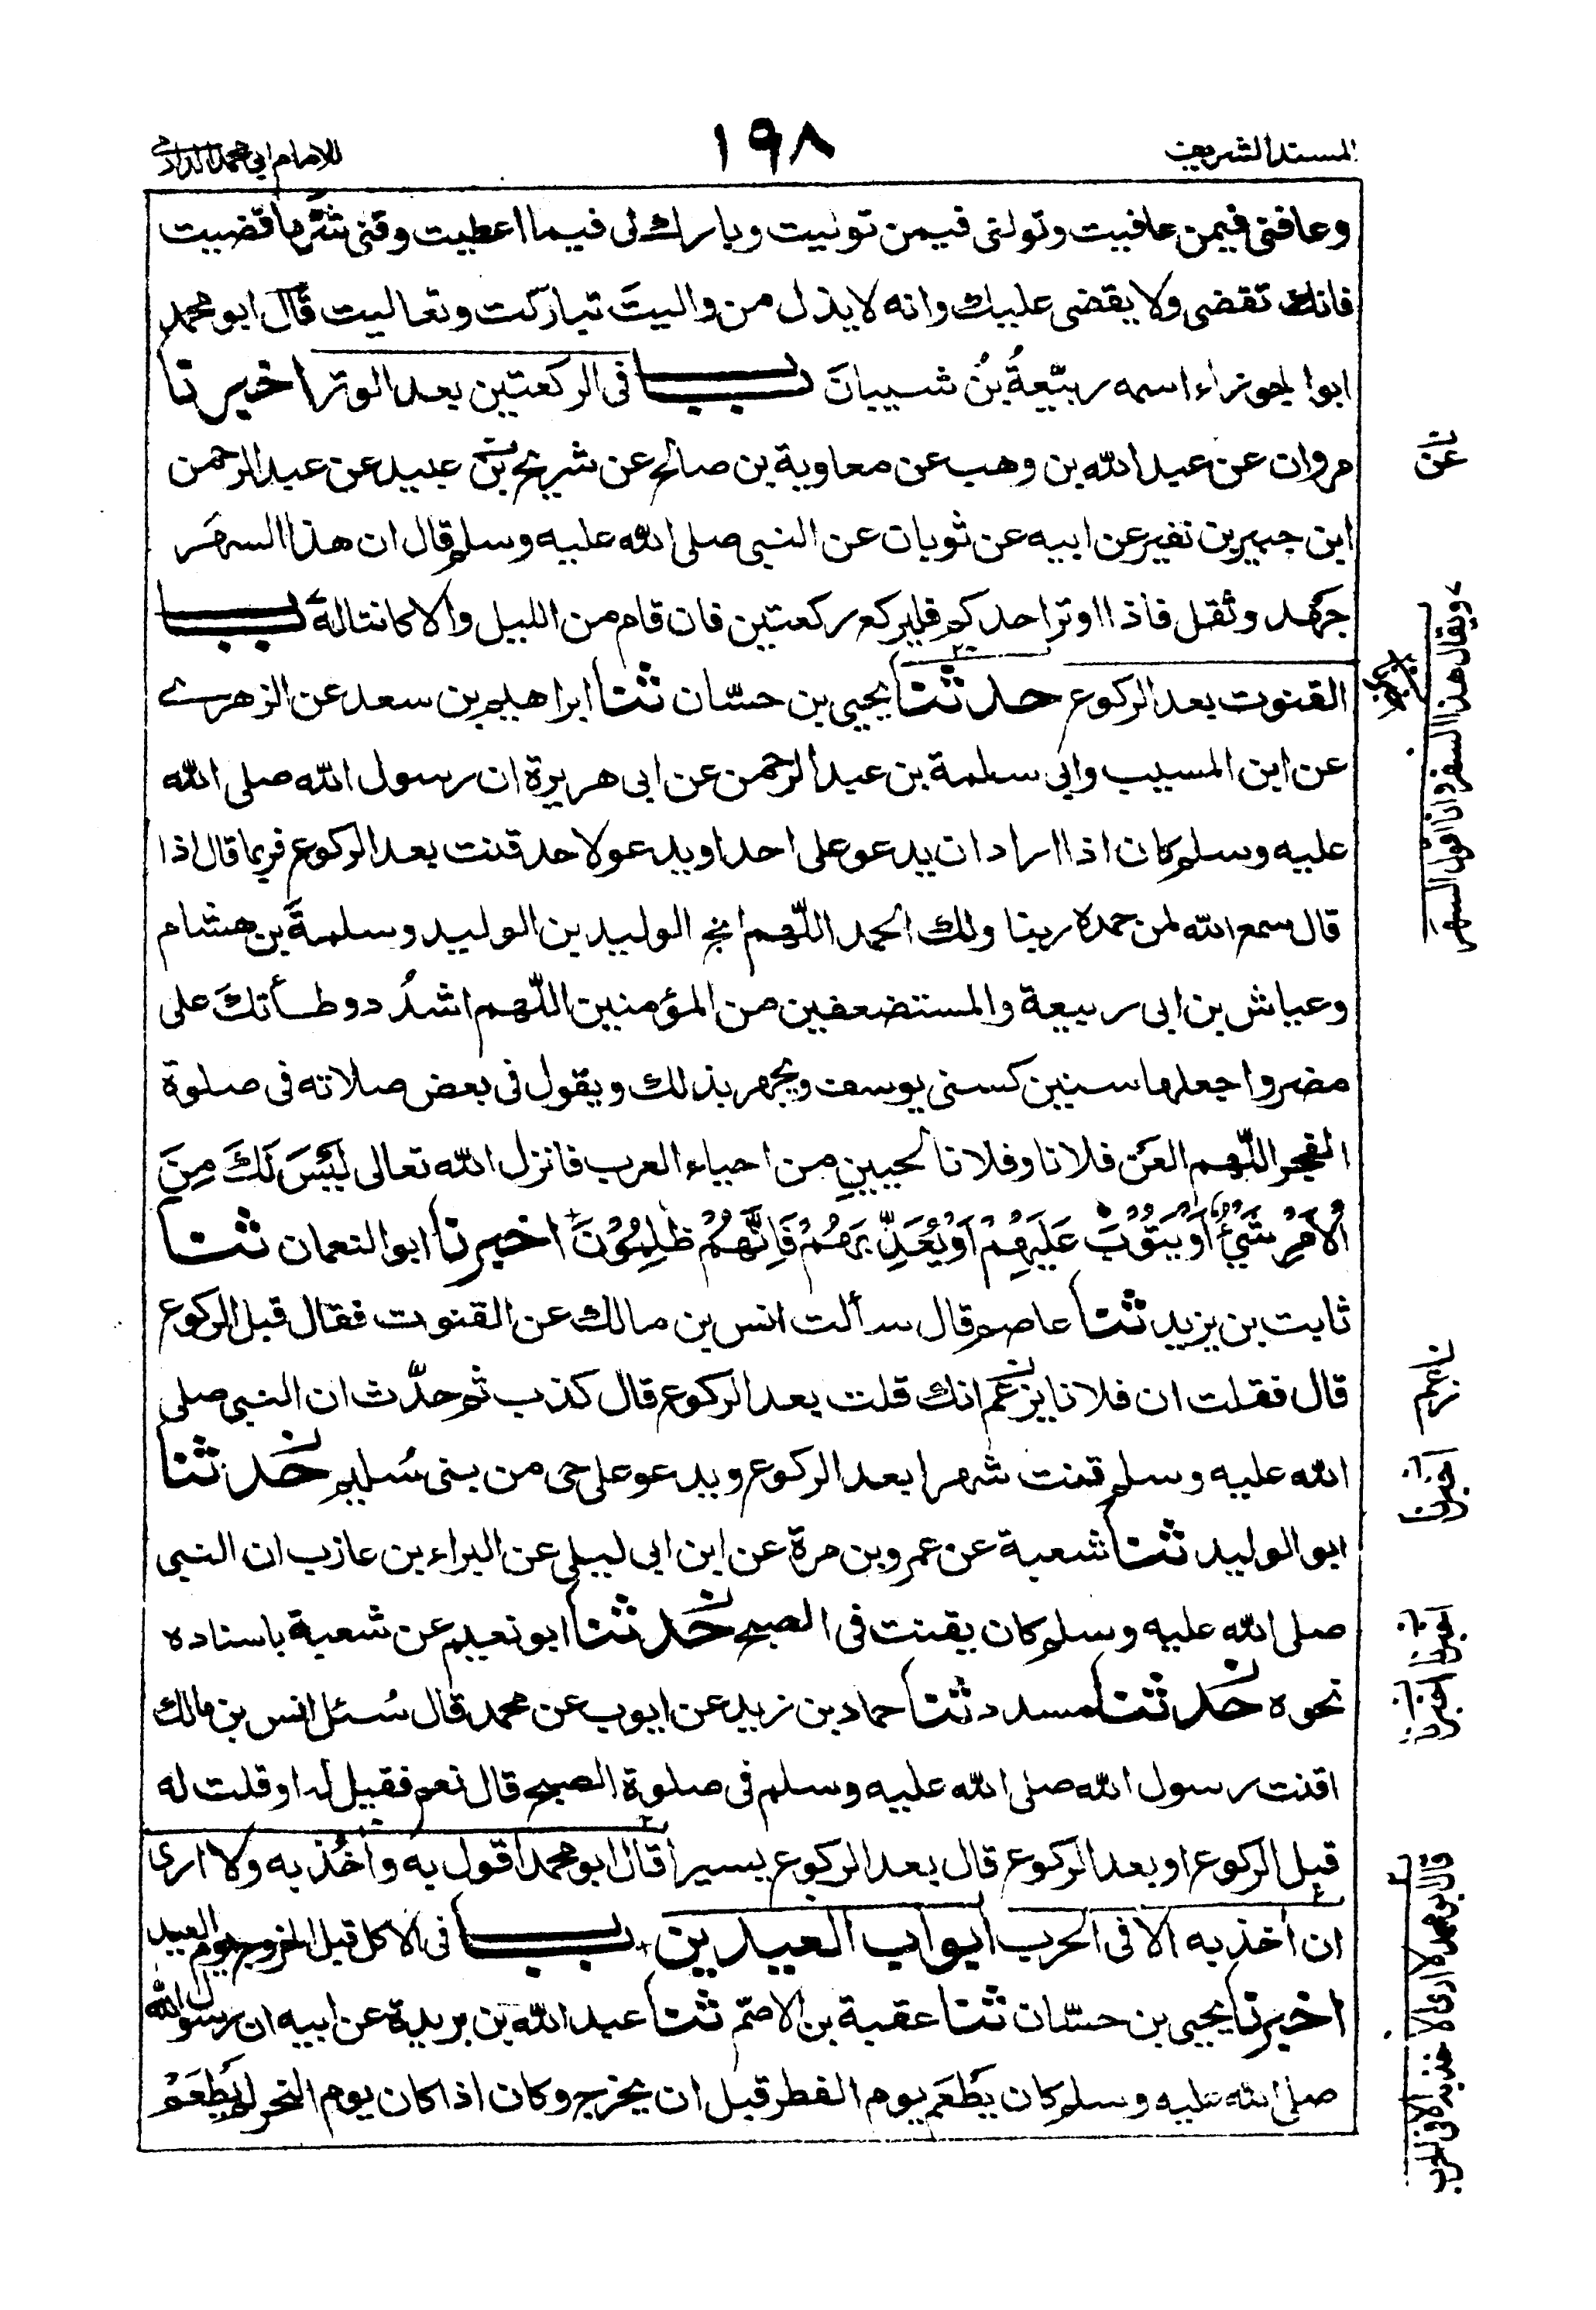 المسند الشريف
١٩٨
للامام ابي محمد الدارمي
وعافنى فيمن عافيت وتولنى فيمن توليت وبارك لى فيما اعطيت وقنى شَرَّما قضيت
فانك تقضى ولا يقضى عليك وانه لا يذل من واليتَ تباركت وتعاليت قال ابو محمد
ابوا لحوزاء اسمه ربيعةُ بنُ شيبان باب فى الركعتين بعد الوتر اخبرنا
مروان عن عبد الله بن وهب عن معاوية بن صالح عن شريح بن عبيد عن عبد الرحمن
ابن جبير بن نفير عن ابيه عن ثوبان عن النبى صلى الله عليه وسلم قال ان هذا السهَر
جَهد وثقل فاذا اوتر احدكم فليركع ركعتين فان قام من الليل والا كانتا له باب
القنوت بعد الركوع حدثنا يحيى بن حسّان ثنا ابراهيم بن سعد عن الزهرى
عن ابن المسيب وابى سلمة بن عبد الرحمن عن ابى هريرة ان رسول الله صلى الله
عليه وسلم كان اذا اراد ان يدعو على احد او يدعو لاحد قنت بعد الركوع فربما قال اذا
قال سمع الله لمن حمده ربنا ولك الحمد اللّهم انج الوليد بن الوليد وسلمةَ بن هشام
وعياش بن ابى ربيعة والمستضعفين من المؤمنين اللّهم اشدُد وطأتكَ على
مضر واجعلها سنين كسنى يوسف ويجهر بذلك ويقول فى بعض صلاته فى صلوة
الفجر اللّهم العَن فلانا وفلانا لحيينِ من احياء العرب فانزل الله تعالى لَيْسَ لَكَ مِنَ
الْاَمْرِ شَيْءٌ اَوْ يَتُوْبَ عَلَيْهِمْ اَوْ يُعَذِّبَهُمْ فَاِنَّهُمْ ظٰلِمُوْنَ اخبرنا ابو النعمان ثنا
ثابت بن يزيد ثنا عاصم قال سألت انس بن مالك عن القنوت فقال قبل الركوع
قال فقلت ان فلانا يزعم انك قلت بعد الركوع قال كذب ثم حدّث ان النبى صلى
الله عليه وسلم قنت شهرا بعد الركوع ويدعو على حى من بنى سُليم حدثنا
ابو الوليد ثنا شعبة عن عمرو بن مرة عن ابن ابى ليلى عن البراء بن عازب ان النبى
صلى الله عليه وسلم كان يقنت فى الصبح حدثنا ابو نعيم عن شعبة باسناده
نحوه حدثنا مسدد ثنا حماد بن زيد عن ايوب عن محمد قال سُئل انس بن مالك
اقنت رسول الله صلى الله عليه وسلم فى صلوة الصبح قال نعم فقيل له او قلت له
قبل الركوع او بعد الركوع قال بعد الركوع يسيرا قال ابو محمد اقول به وآخُذ به ولا ارى
ان آخذ به الا فى الحرب ابواب العيدين باب فى الاكل قبل الخروج يوم العيد
اخبرنا يحيى بن حسّان ثنا عقبة بن الاصمّ ثنا عبد الله بن بريدة عن ابيه ان رسول الله
صلى الله عليه وسلم كان يَطْعَم يوم الفطر قبل ان يخرج وكان اذا كان يوم النحر لم يَطْعَمْ
عن
ويقال هذا السفر وانا اقول السهر
زعم
اخبرنا
اخبرنا
اخبرنا
قال ابو محمد لا ارى الاخذ به الا فى الحرب